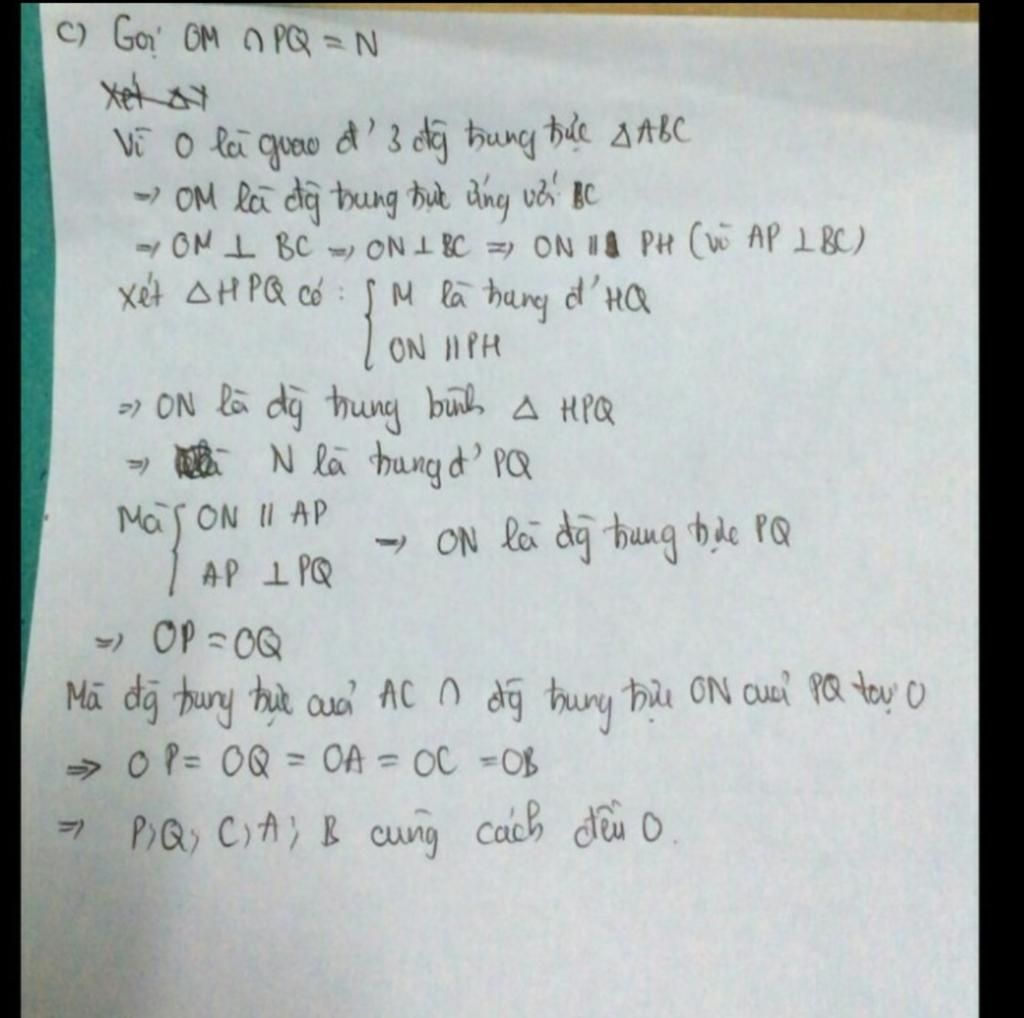 c) Gọi OM ∩ PQ = N
Xét Δ
Vì O là giao đ' 3 đg trung trực ΔABC
⇒ OM là đg trung trực ứng với BC
⇒ OM ⊥ BC ⇒ ON ⊥ BC ⇒ ON // PH (vì AP ⊥ BC)
Xét ΔHPQ có : { M là trung đ' HQ
ON // PH
⇒ ON là đg trung bình Δ HPQ
⇒ N là trung đ' PQ
Mà { ON // AP
AP ⊥ PQ
⇒ ON là đg trung trực PQ
⇒ OP = OQ
Mà đg trung trực của AC ∩ đg trung trực ON của PQ tại O
⇒ OP = OQ = OA = OC = OB
⇒ P, Q, C, A, B cùng cách đều O.